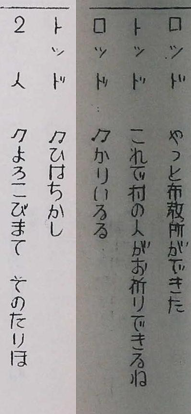 ロッド　やっと布教所ができた
トッド　これで村の人がお祈りできるね
ロッド　♫かりいるる
トッド　♫ひはちかし
2人　♫よろこびまて　そのたりほ